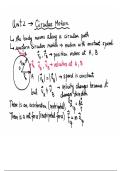 Unit 2 → Circular Motion
↳ the body moves along a circular path
↳ uniform circular motion → motion with constant speed
r⃗₁, r⃗₂ → position vectors at A, B
v⃗₁, v⃗₂ → velocities at A, B
|v⃗₁| = |v⃗₂| → speed is constant
but v⃗₁ ≠ v⃗₂ → velocity changes because it changes direction
There is an acceleration (centripetal)
There is a net force (centripetal force)